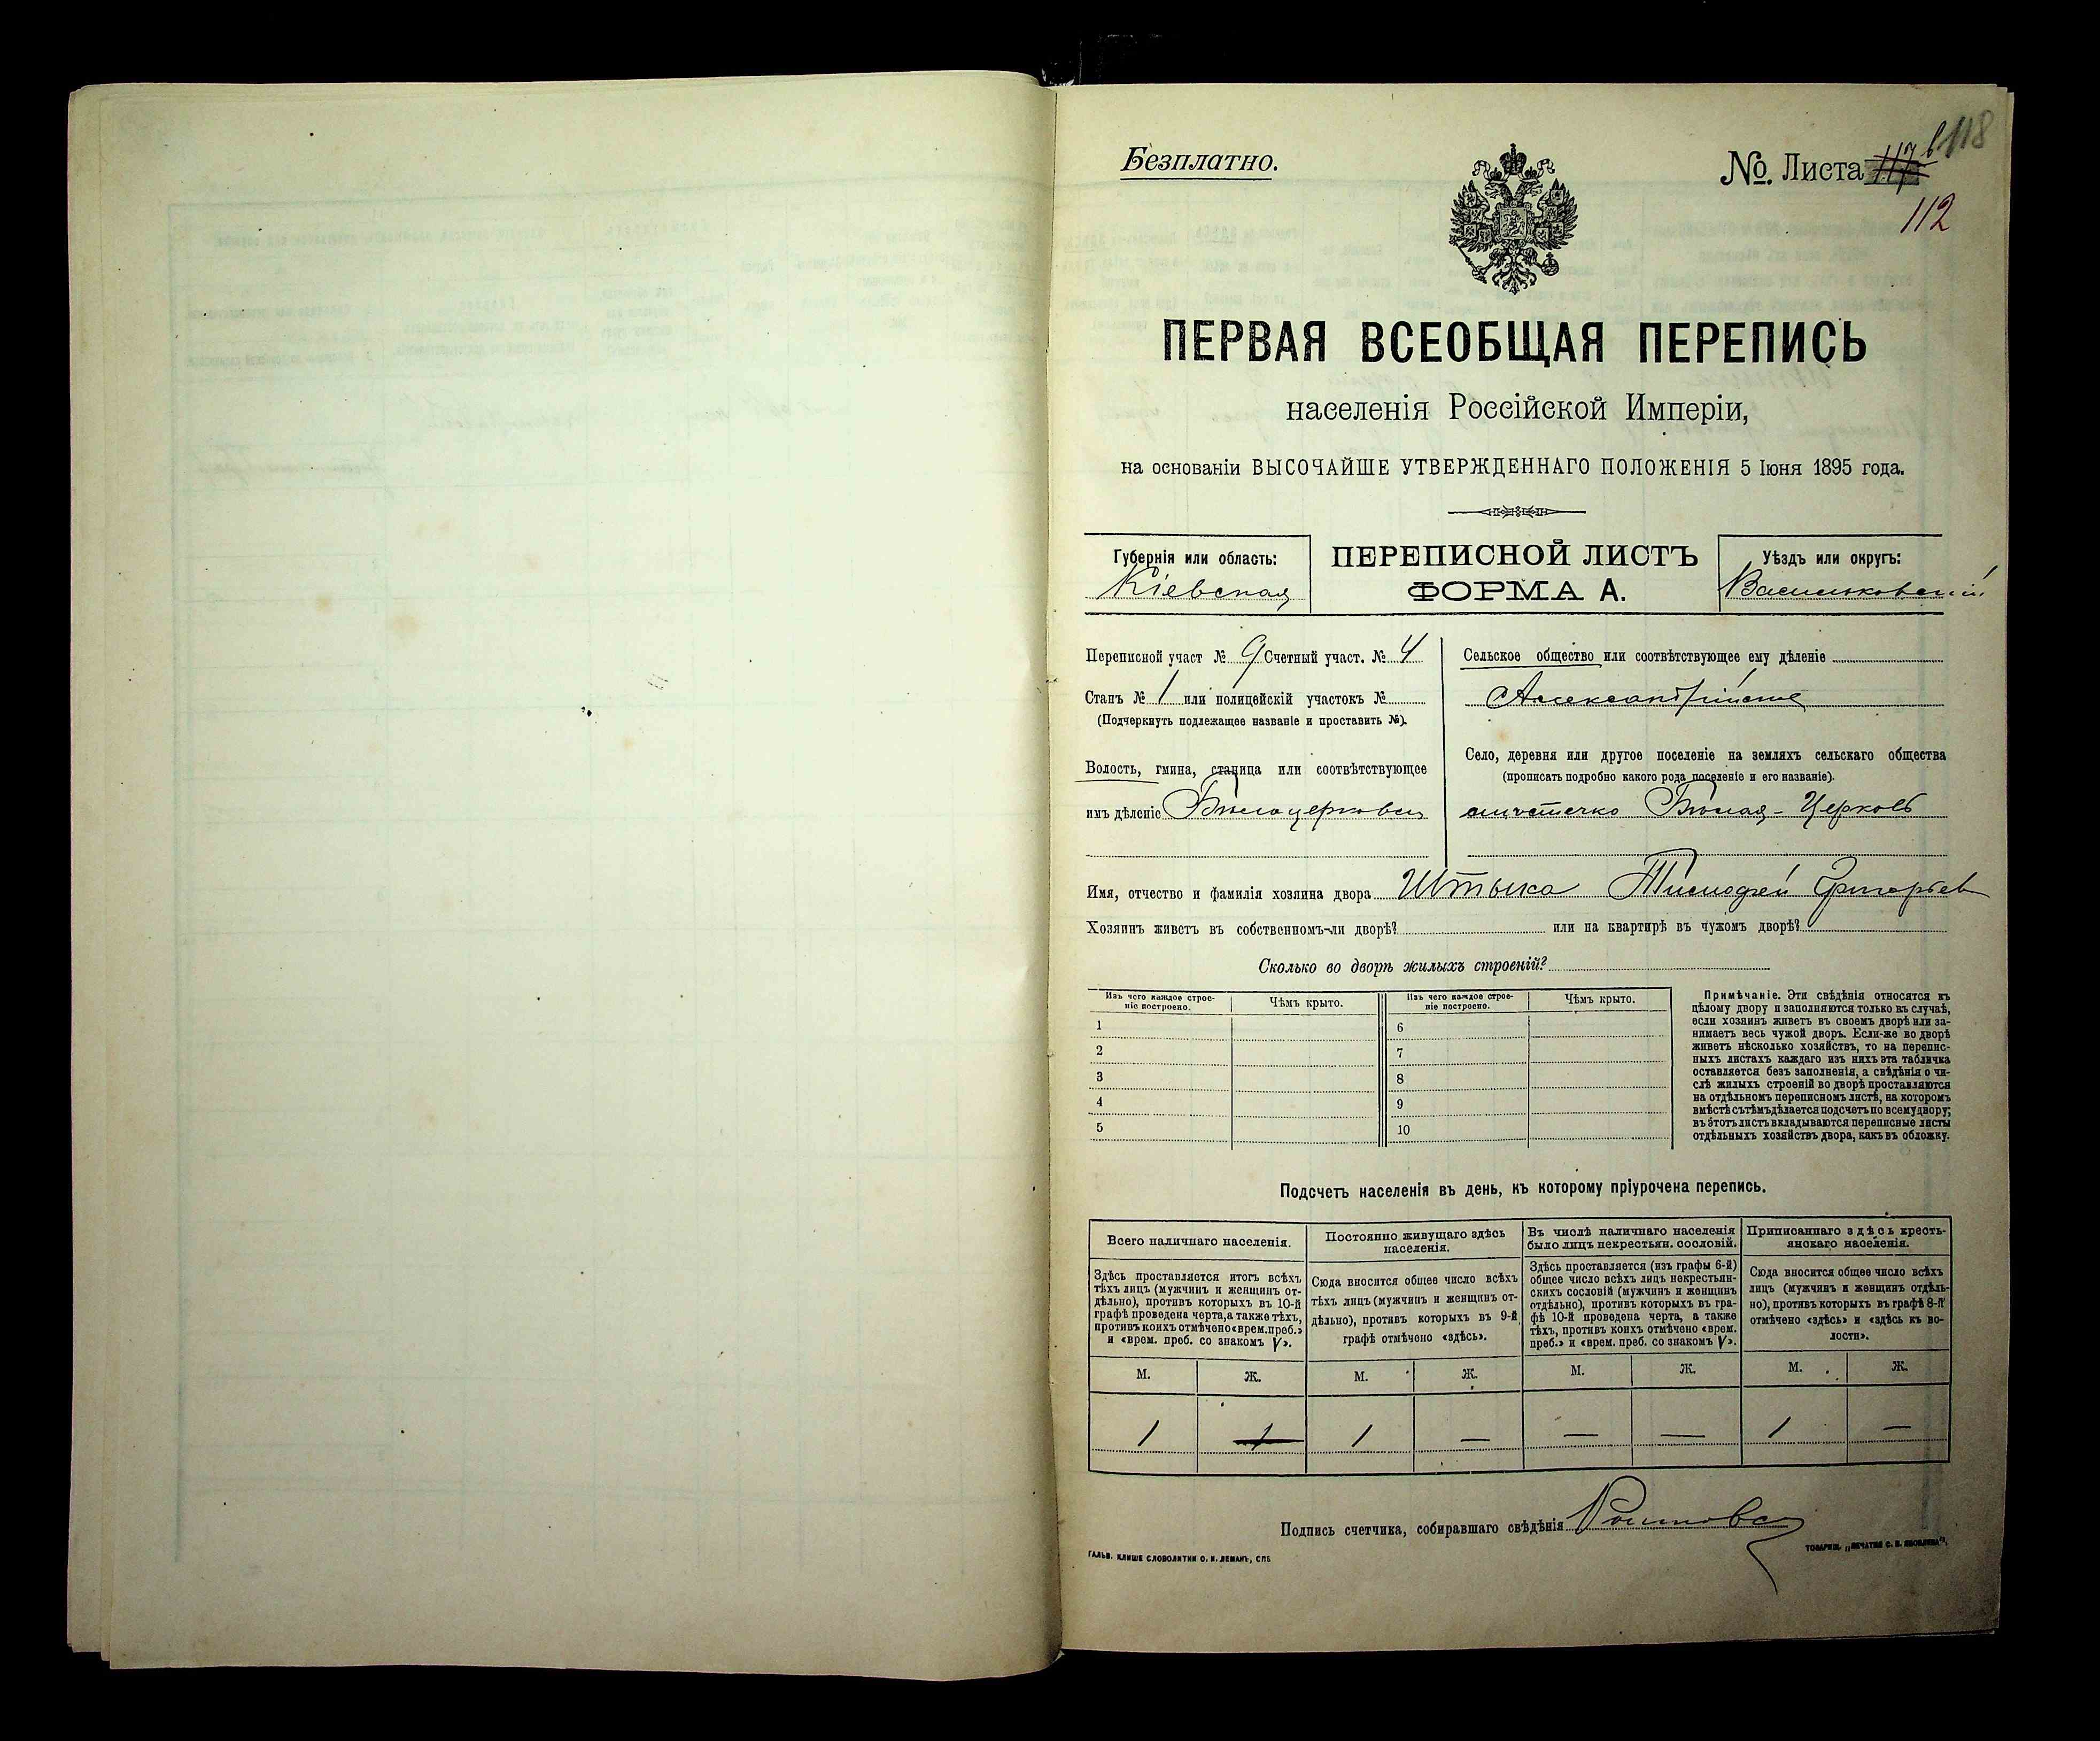 118
Безплатно.
№. Листа 117 в
112
ПЕРВАЯ ВСЕОБЩАЯ ПЕРЕПИСЬ
населенія Россійской Имперіи,
на основаніи ВЫСОЧАЙШЕ УТВЕРЖДЕННАГО ПОЛОЖЕНІЯ 5 Іюня 1895 года.
Губернія или область:
Кіевская
ПЕРЕПИСНОЙ ЛИСТЪ
ФОРМА А.
Уѣздъ или округъ:
Васильковскій
Переписной участ № 9 Счетный участ. № 4
Станъ № 1 или полицейскій участокъ №
(Подчеркнуть подлежащее названіе и проставить №).
Волость, гмина, станица или соотвѣтствующее
имъ дѣленіе Бѣлоцерковск
Сельское общество или соотвѣтствующее ему дѣленіе
Александрійское
Село, деревня или другое поселеніе на земляхъ сельскаго общества
(прописать подробно какого рода поселеніе и его названіе).
мѣстечко Бѣлая-Церковь
Имя, отчество и фамилія хозяина двора Штыка Тимофей Григорьев
Хозяинъ живетъ въ собственномъ-ли дворѣ? или на квартирѣ въ чужомъ дворѣ?
Сколько во дворѣ жилыхъ строеній?
Изъ чего каждое строе-
ніе построено.
Чѣмъ крыто.
Изъ чего каждое строе-
ніе построено.
Чѣмъ крыто.
1
2
3
4
5
6
7
8
9
10
Примѣчаніе. Эти свѣдѣнія относятся къ
цѣлому двору и заполняются только въ случаѣ,
если хозяинъ живетъ въ своемъ дворѣ или за-
нимаетъ весь чужой дворъ. Если-же во дворѣ
живетъ нѣсколько хозяйствъ, то на перепис-
ныхъ листахъ каждаго изъ нихъ эта табличка
оставляется безъ заполненія, а свѣдѣнія о чи-
слѣ жилыхъ строеній во дворѣ проставляются
на отдѣльномъ переписномъ листѣ, на которомъ
вмѣстѣ съ тѣмъ дѣлается подсчетъ по всему двору;
въ этотъ листъ вкладываются переписные листы
отдѣльныхъ хозяйствъ двора, какъ въ обложку.
Подсчетъ населенія въ день, къ которому пріурочена перепись.
Всего наличнаго населенія.
Здѣсь проставляется итогъ всѣхъ
тѣхъ лицъ (мужчинъ и женщинъ от-
дѣльно), противъ которыхъ въ 10-й
графѣ проведена черта, а также тѣхъ,
противъ коихъ отмѣчено «врем. преб.»
и «врем. преб. со знакомъ V».
М. Ж.
1 1
Постоянно живущаго здѣсь
населенія.
Сюда вносится общее число всѣхъ
тѣхъ лицъ (мужчинъ и женщинъ от-
дѣльно), противъ которыхъ въ 9-й
графѣ отмѣчено «здѣсь».
М. Ж.
1 —
Въ числѣ наличнаго населенія
было лицъ некрестьян. сословій.
Здѣсь проставляется (изъ графы 6-й)
общее число всѣхъ лицъ некрестьян-
скихъ сословій (мужчинъ и женщинъ
отдѣльно), противъ которыхъ въ гра-
фѣ 10-й проведена черта, а также
тѣхъ, противъ коихъ отмѣчено «врем.
преб.» и «врем. преб. со знакомъ V».
М. Ж.
— —
Приписаннаго здѣсь кресть-
янскаго населенія.
Сюда вносится общее число всѣхъ
лицъ (мужчинъ и женщинъ отдѣль-
но), противъ которыхъ въ графѣ 8-й
отмѣчено «здѣсь» и «здѣсь къ во-
лости».
М. Ж.
1 —
Подпись счетчика, собиравшаго свѣдѣнія
ГАЛЬВ. КЛИШЕ СЛОВОЛИТНИ О. И. ЛЕМАНЪ, СПБ
ТОВАРИЩ. „ПЕЧАТНЯ С. П. ЯКОВЛЕВА“,